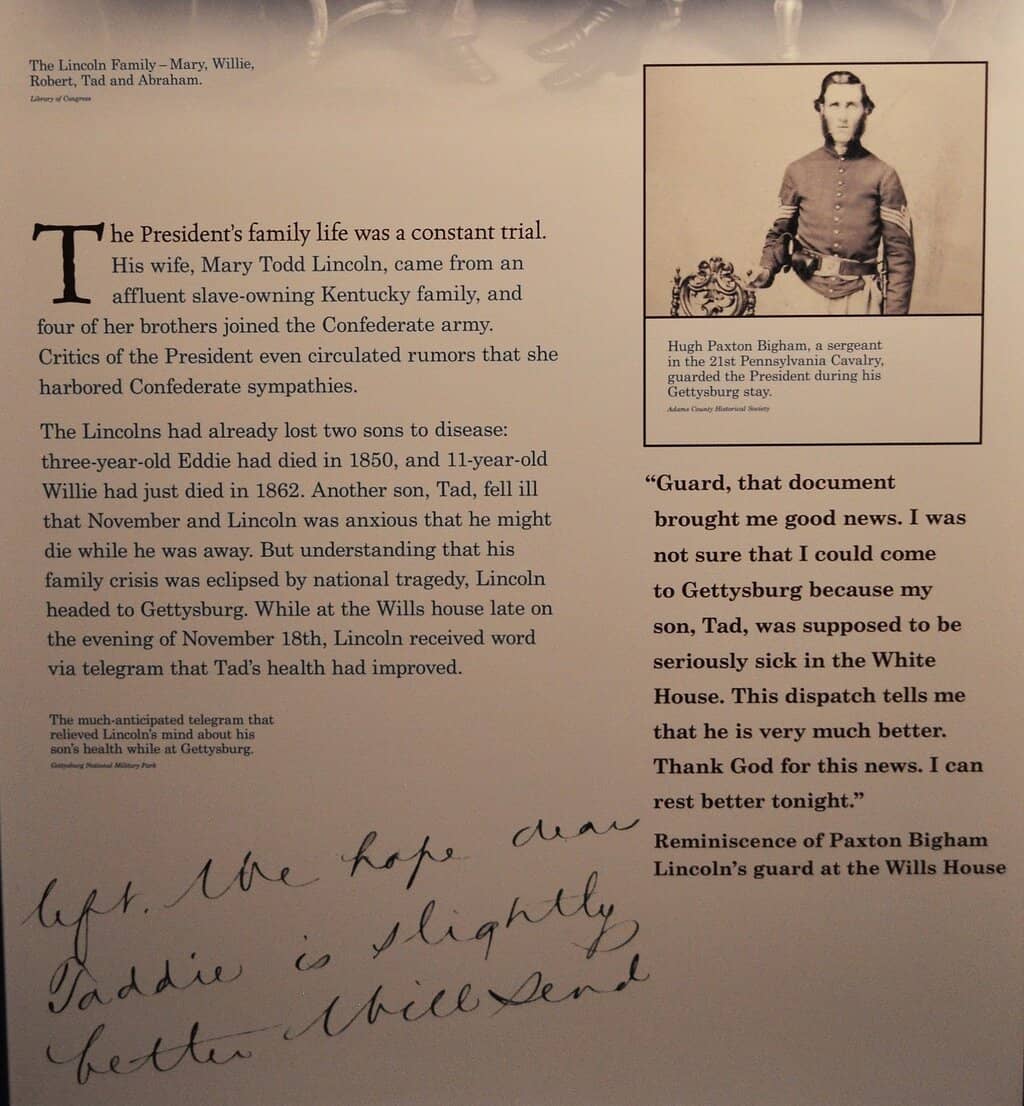 The Lincoln Family – Mary, Willie,
Robert, Tad and Abraham.
Library of Congress
The President's family life was a constant trial.
His wife, Mary Todd Lincoln, came from an
affluent slave-owning Kentucky family, and
four of her brothers joined the Confederate army.
Critics of the President even circulated rumors that she
harbored Confederate sympathies.
The Lincolns had already lost two sons to disease:
three-year-old Eddie had died in 1850, and 11-year-old
Willie had just died in 1862. Another son, Tad, fell ill
that November and Lincoln was anxious that he might
die while he was away. But understanding that his
family crisis was eclipsed by national tragedy, Lincoln
headed to Gettysburg. While at the Wills house late on
the evening of November 18th, Lincoln received word
via telegram that Tad's health had improved.
The much-anticipated telegram that
relieved Lincoln's mind about his
son's health while at Gettysburg.
Gettysburg National Military Park
left. We hope dear
Taddie is slightly
better Will send
Hugh Paxton Bigham, a sergeant
in the 21st Pennsylvania Cavalry,
guarded the President during his
Gettysburg stay.
Adams County Historical Society
“Guard, that document
brought me good news. I was
not sure that I could come
to Gettysburg because my
son, Tad, was supposed to be
seriously sick in the White
House. This dispatch tells me
that he is very much better.
Thank God for this news. I can
rest better tonight.”
Reminiscence of Paxton Bigham
Lincoln's guard at the Wills House